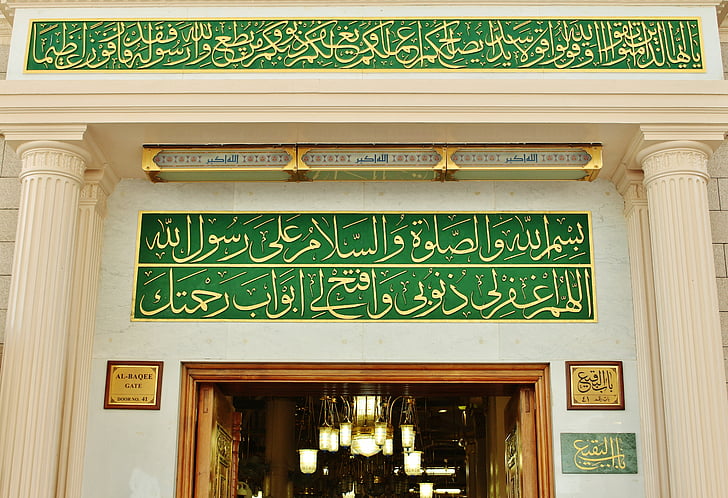 يا أيها الذين آمنوا اتقوا الله وقولوا قولا سديدا يصلح لكم أعمالكم ويغفر لكم ذنوبكم ومن يطع الله ورسوله فقد فاز فوزا عظيما
الله اكبر الله اكبر الله اكبر
بسم الله والصلاة والسلام على رسول الله
اللهم اغفر لي ذنوبي وافتح لي ابواب رحمتك
AL-BAQEE
GATE
DOOR NO. 41
باب البقيع
باب رقم ٤١
باب البقيع